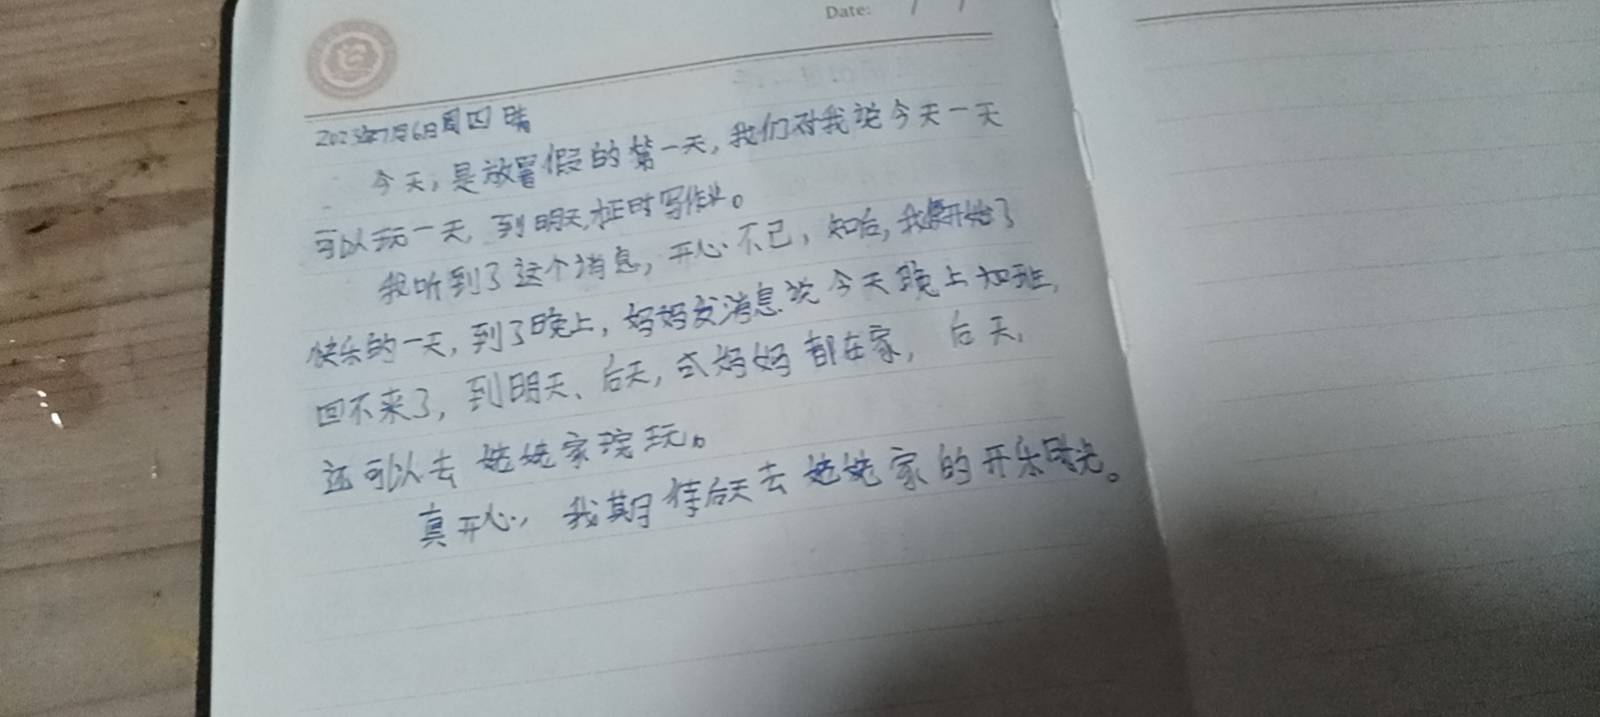 Date: / /
2023年7月6日周四 晴
今天，是放暑假的第一天，我们对我说今天一天
可以玩一天，到明天，按时写作业。
我听到了这个消息，开心不已，知后，我便开始了
快乐的一天，到了晚上，妈妈发消息说今天晚上加班，
回不来了，到明天、后天，妈妈都在家，后天，
还可以去姥姥家玩。
真开心，我期待后天去姥姥家的开乐时光。